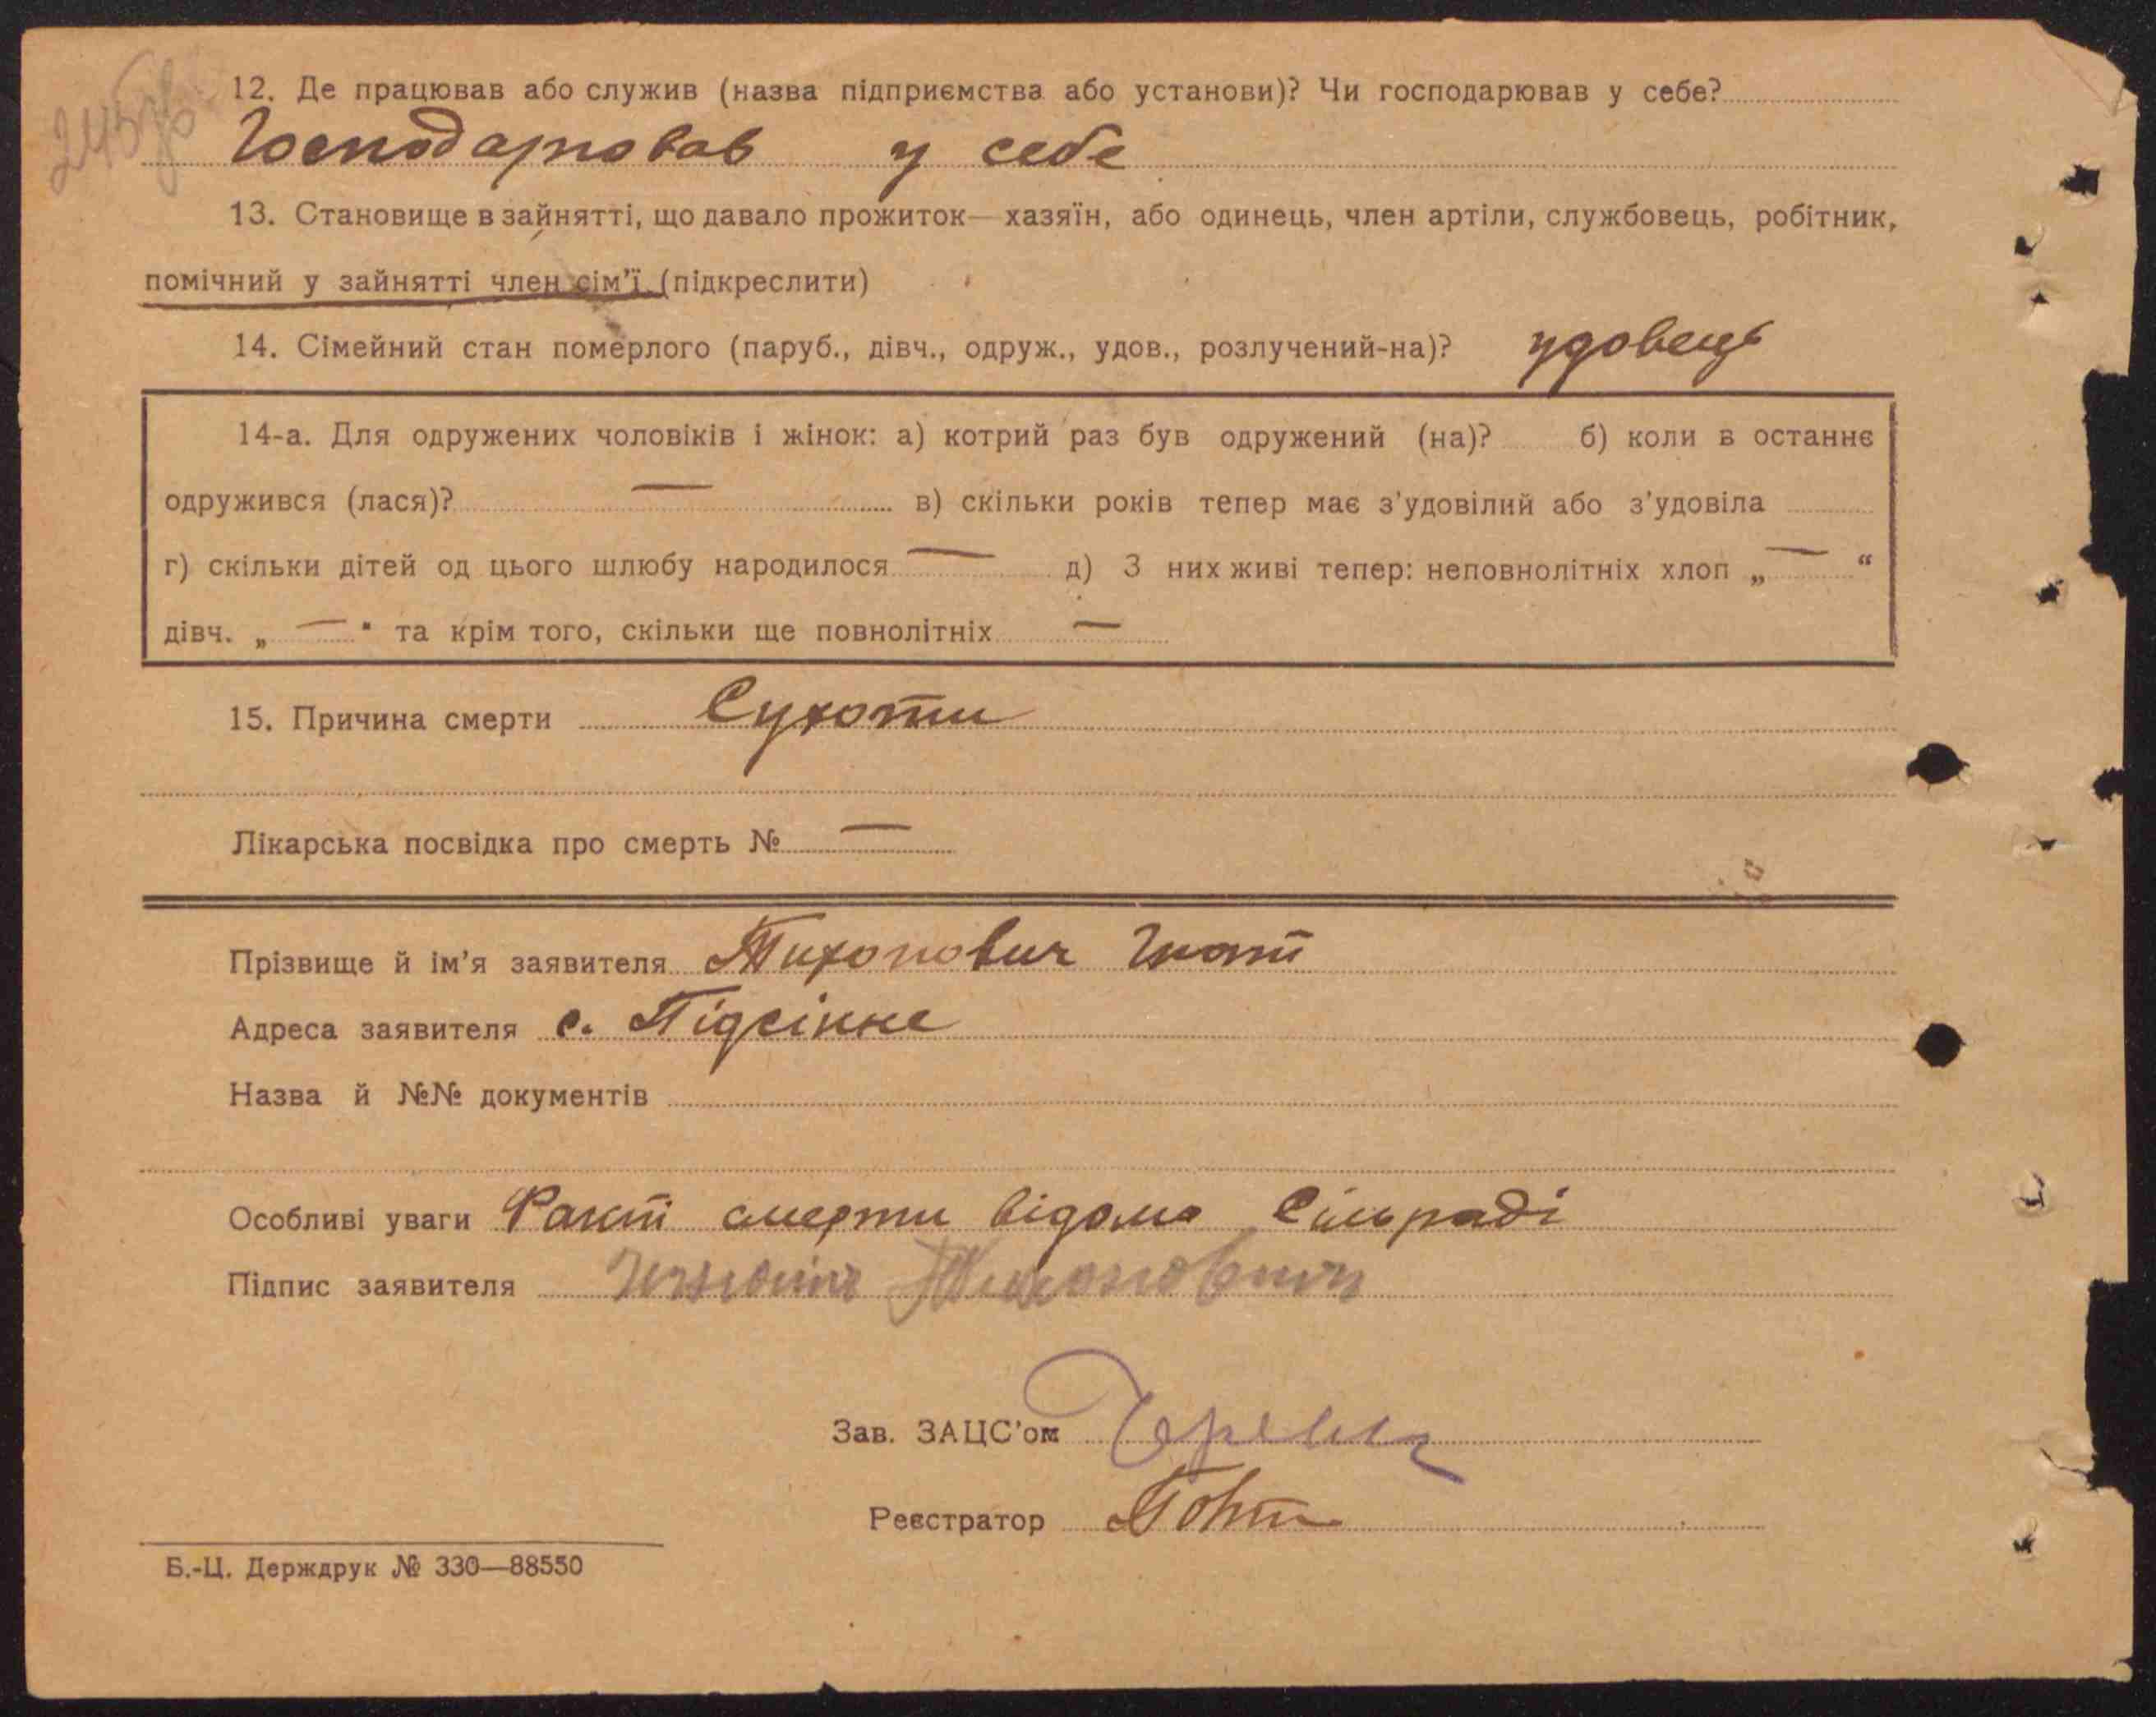 245зв
12. Де працював або служив (назва підприємства або установи)? Чи господарював у себе?
Господарював у себе
13. Становище в зайнятті, що давало прожиток—хазяїн, або одинець, член артіли, службовець, робітник,
помічний у зайнятті член сім'ї (підкреслити)
14. Сімейний стан померлого (паруб., дівч., одруж., удов., розлучений-на)? удовець
14-а. Для одружених чоловіків і жінок: а) котрий раз був одружений (на)? б) коли в останнє
одружився (лася)? — в) скільки років тепер має з'удовілий або з'удовіла
г) скільки дітей од цього шлюбу народилося — д) З них живі тепер: неповнолітніх хлоп „ — “
дівч. „ — “ та крім того, скільки ще повнолітніх —
15. Причина смерти Сухоти
Лікарська посвідка про смерть № —
Прізвище й ім'я заявителя Тихонович Гнат
Адреса заявителя с. Підсінне
Назва й №№ документів
Особливі уваги Факт смерти відомо Сільраді
Підпис заявителя Тихонович
Зав. ЗАЦС'ом
Реєстратор
Б.-Ц. Держдрук № 330—88550